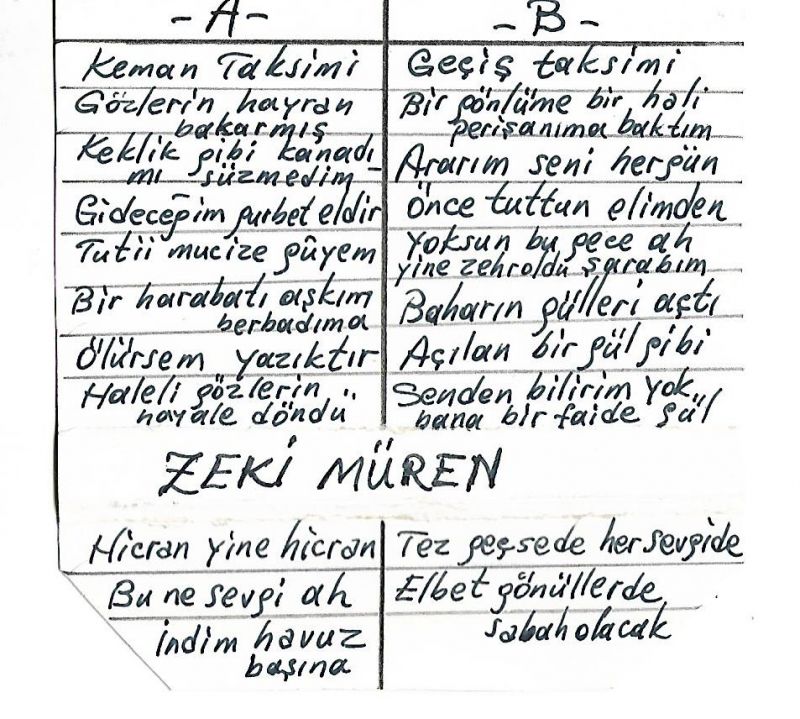 -A-
Keman Taksimi
Gözlerin hayran
bakarmış
Keklik gibi kanadı
mı süzmedim
Gideceğim gurbet eldir
Tutii mucize gûyem
Bir harabatı aşkım
berbadıma
Ölürsem yazıktır
Haleli gözlerin
hayale döndü
-B-
Geçiş taksimi
Bir gönlüme bir hali
perişanıma baktım
Ararım seni hergün
Önce tuttun elimden
Yoksun bu gece ah
yine zehroldu şarabım
Baharın gülleri açtı
Açılan bir gül gibi
Senden bilirim yok
bana bir faide gül
ZEKİ MÜREN
Hicran Yine hicran
Bu ne sevgi ah
İndim havuz
başına
Tez geçsede her sevgide
Elbet gönüllerde
sabah olacak